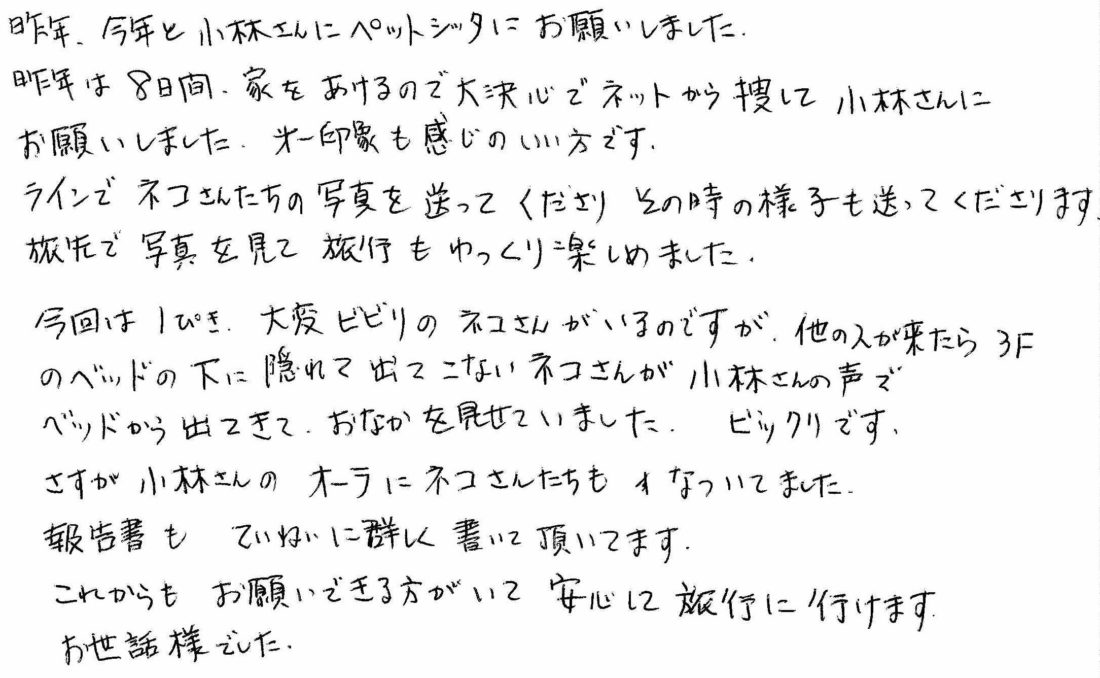 昨年、今年と小林さんにペットシッタにお願いしました。
昨年は8日間、家をあけるので大決心でネットから捜して小林さんに
お願いしました。才一印象も感じのいい方です。
ラインでネコさんたちの写真を送ってくださり その時の様子も送ってくださります。
旅先で写真を見て旅行もゆっくり楽しめました。
今回は1ぴき、大変ビビリのネコさんがいるのですが、他の人が来たら3F
のベッドの下に隠れて出てこないネコさんが小林さんの声で
ベッドから出てきて、おなかを見せていました。 ビックリです。
さすが小林さんのオーラにネコさんたちも なついてました。
報告書も ていねいに詳しく書いて頂いてます。
これからも お願いできる方がいて 安心して旅行に行けます。
お世話様でした。